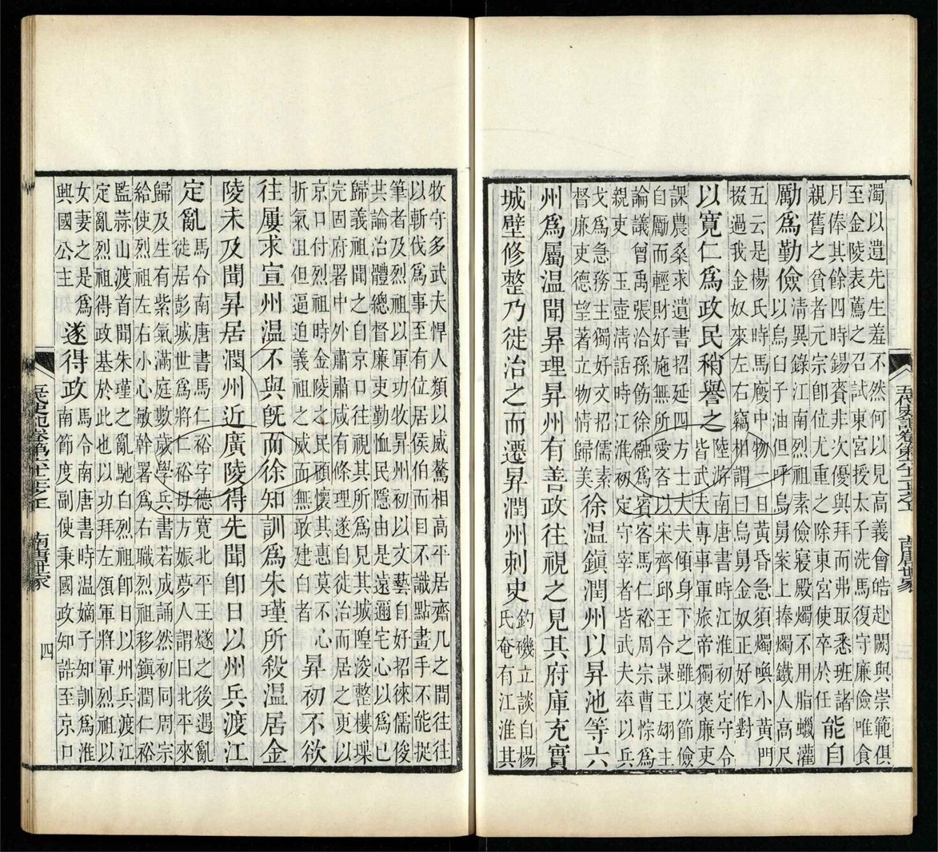 濁以遺先生羞不然何以見高義會皓赴闕與崇範俱
至金陵表薦之召試東宮授太子洗馬復守廉儉唯食
月俸其餘四時錫賚非次優與拜而弗取悉班諸
親舊之貧者元宗卽位尤重之除東宮使卒於任
能自
勵爲勤儉
清異錄江南烈祖素儉寢殿燭不用脂蠟灌
以烏臼子油但呼烏舅案上捧燭鐵人高尺
五云是楊氏時馬廄中物一日黃昏急須燭喚小黃門
掇過我金奴來左右竊相謂曰烏舅金奴正好作對
以寬仁爲政民稍譽之
陸游南唐書時江淮初定守令
皆武夫專事軍旅帝獨褒廉吏
課農桑求遺書招延四方士大夫傾身下之雖以節儉
自勵而輕財好施無所愛吝以宋齊邱王令謀王翃主
論議曾禹張洽孫飭徐融爲賓客馬仁裕周宗曹悰爲
親吏 玉壺淸話時江淮初定守宰者皆武夫率以兵
戈爲急務主獨好文招儒素
督廉吏德望著立物情歸美
徐溫鎭潤州以昇池等六
州爲屬溫聞昇理昇州有善政往視之見其府庫充實
城壁修整乃徙治之而遷昇潤州刺史
釣磯立談自楊
氏奄有江淮其
牧守多武夫悍人類以威驁相高平居齋几之間往往
以斬伐爲事至有位居侯伯而目不識點畫手不能捉
筆者及烈祖以軍功收昇州初以文藝自好招徠儒俊
共論治體總督廉吏勤恤民隱由是遠邇宅心以爲己
歸義祖聞之自京口往視其所爲見其城隍浚整樓堞
完固府署中外肅肅咸有條理遂自徙治而居之更以
京口付烈祖時金陵之民頑懷其惠莫不心
折氣沮但逼迫義祖之威而無敢建白者
昇初不欲
往屢求宣州溫不與旣而徐知訓爲朱瑾所殺溫居金
陵未及聞昇居潤州近廣陵得先聞卽日以州兵渡江
定亂
馬令南唐書馬仁裕字德寬北平王燧之後遇亂
徙居彭城世爲將仁裕母方娠夢人謂曰北平來
歸及生有紫氣滿庭數歲學兵書若成誦然初同周宗
給使烈祖左右小心敏幹署爲右職烈祖移鎭潤仁裕
監蒜山渡首聞朱瑾之亂馳白烈祖卽日以州兵渡江
定亂烈祖得政基於此也以功拜左領軍將軍烈祖以
女妻之是爲
興國公主
遂得政
馬令南唐書時溫嫡子知訓爲淮
南節度副使秉國政知誥至京口
南唐世家
四